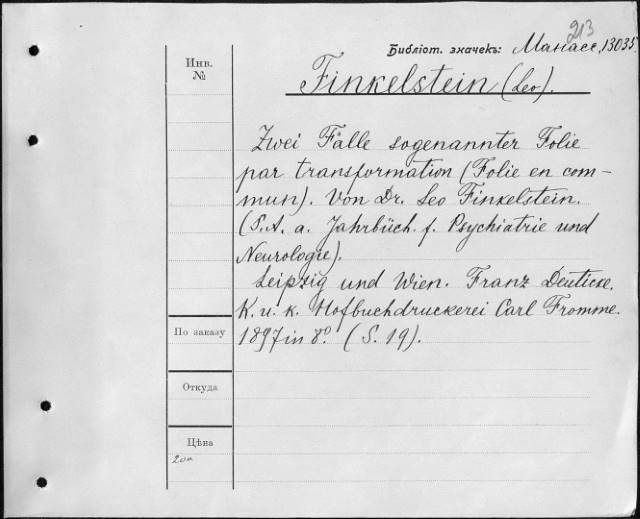 213
Библіот. значекъ: Манасс. 13035.
Инв.
№
Finkelstein (Leo).
Zwei Fälle sogenannter Folie
par transformation (Folie en com-
mun). Von Dr. Leo Finkelstein.
(S.A. a. Jahrbüch. f. Psychiatrie und
Neurologie).
Leipzig und Wien. Franz Deuticke.
K. u. k. Hofbuchdruckerei Carl Fromme.
1897 in 8º. (S. 19).
По заказу
Откуда
Цѣна